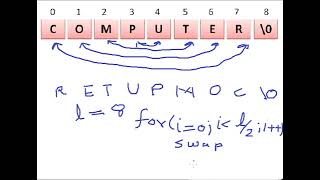 0 1 2 3 4 5 6 7 8
C O M P U T E R \0
R E T U P M O C \0
l = 8 for(i=0; i< l/2; i++)
swap